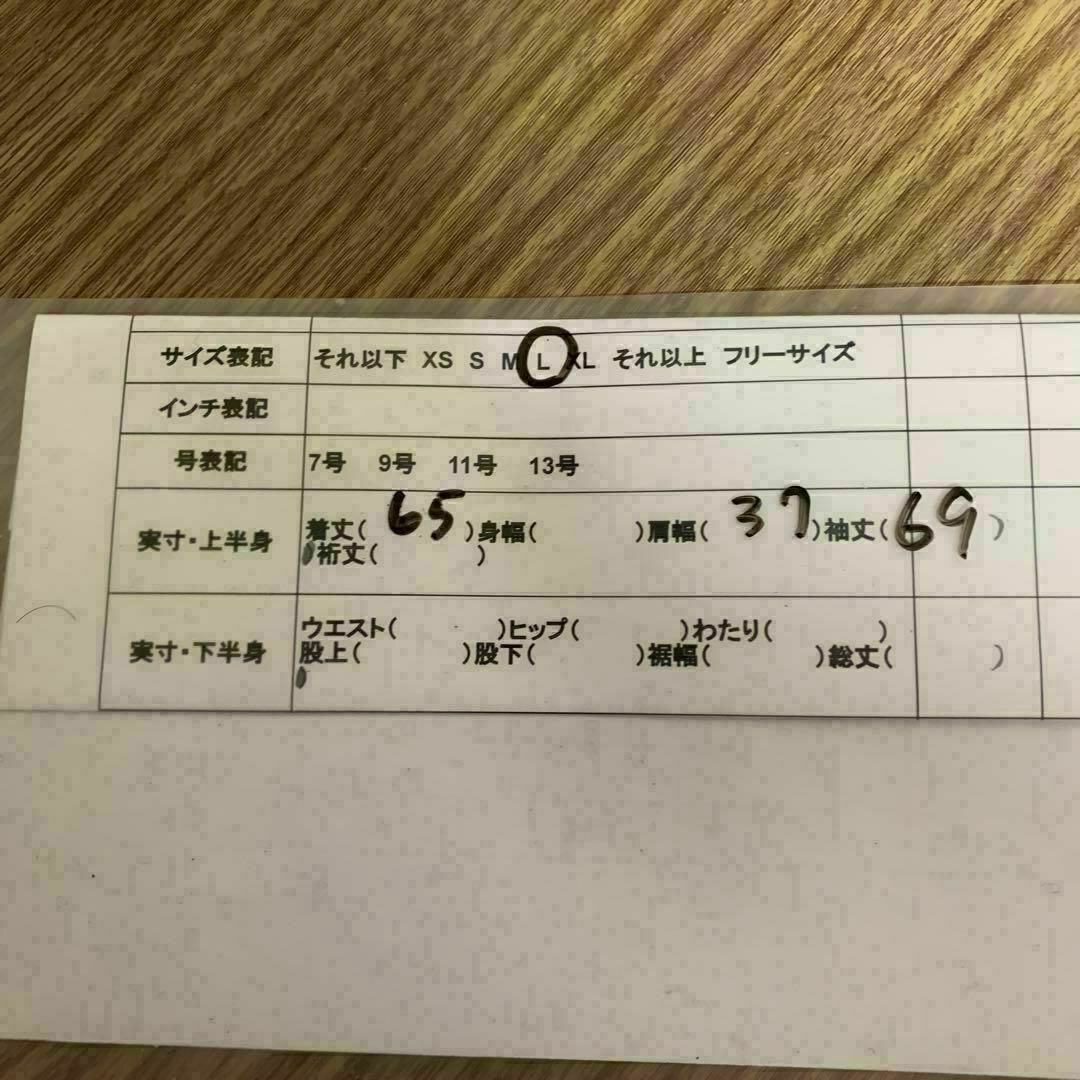 サイズ表記 それ以下 XS S M L XL それ以上 フリーサイズ
インチ表記
号表記 7号 9号 11号 13号
実寸・上半身 着丈( 65 )身幅( )肩幅( 37 )袖丈( 69 )
裄丈( )
実寸・下半身 ウエスト( )ヒップ( )わたり( )
股上( )股下( )裾幅( )総丈( )